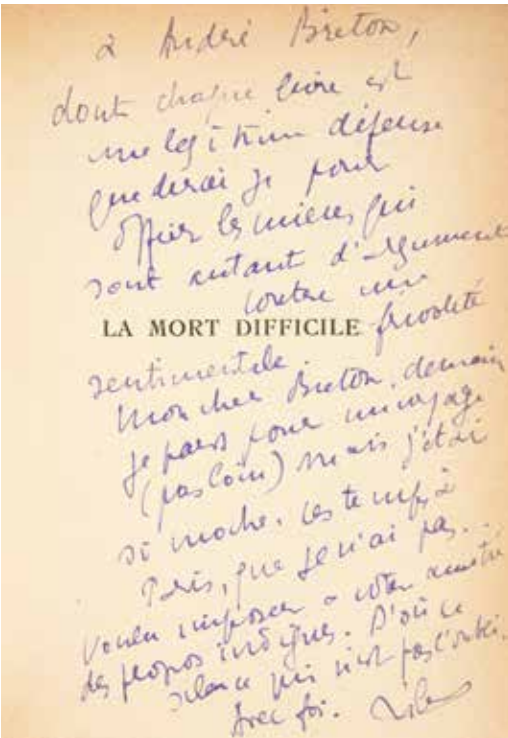 à André Breton,
dont chaque livre est
une légitime défense
que dirai je pour
offrir les miens qui
sont autant d'arguments
contre une
LA MORT DIFFICILE
frivolité
sentimentale.
Mon cher Breton, demain
je pars pour un voyage
(pas loin) mais j'étais
si moche, ces temps, à
Paris, que je n'ai pas
voulu imposer à votre amitié
des propos indignes. D'où ce
silence qui n'est pas l'oubli.
Avec foi.